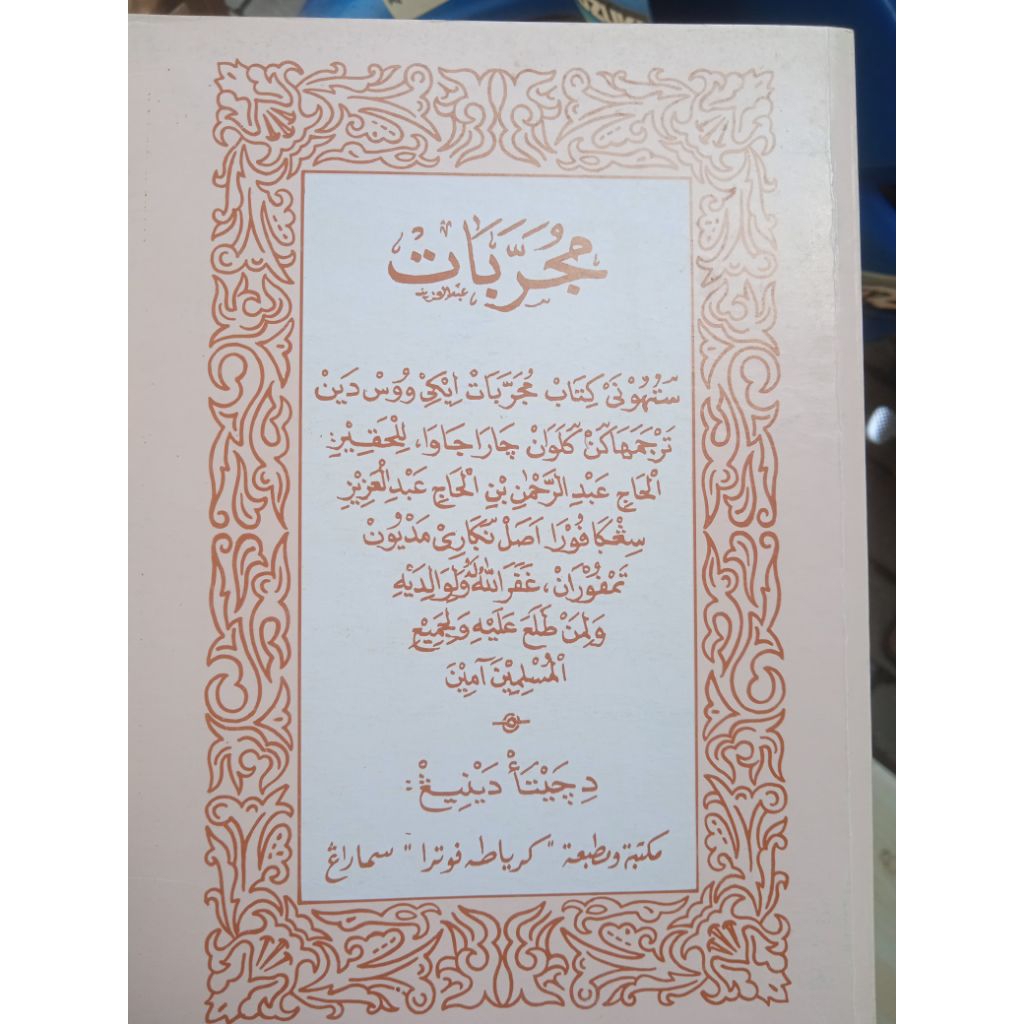 مُجَرَّبَات
عبد العزيز
سَتُهُونَيْ كِتَابْ مُجَرَّبَاتْ اِيْكِيْ وُوسْ دَيْنْ
تَرْجَمَهَاكَنْ كَلَوَانْ چَارَا جَاوَا، لِلْحَقِيْرِ:
الْحَاجِ عَبْدِ الرَّحْمٰنِ بْنِ الْحَاجِ عَبْدِ الْعَزِيْزِ
سِڠْكَافُوْرَا اَصَلْ نَݢَارِيْ مَدْيُونْ
تَمْفُوْرَانْ، غَفَرَ اللهُ لَهُ وَلِوَالِدَيْهِ
وَلِمَنْ طَلَعَ عَلَيْهِ وَلِجَمِيْعِ
الْمُسْلِمِيْنَ آمِيْنَ
دِچَيْتَاأْ دَيْنِيڠْ:
مكتبة ومطبعة "كرياطه فوترا" سماراڠ